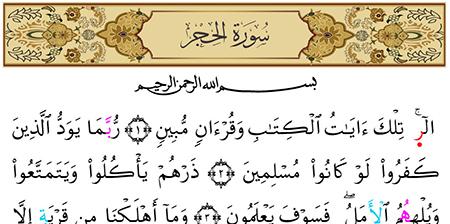 سُورَةُ الحِجۡرِ
بِسۡمِ ٱللَّهِ ٱلرَّحۡمَٰنِ ٱلرَّحِيمِ
الٓرۚ تِلۡكَ ءَايَٰتُ ٱلۡكِتَٰبِ وَقُرۡءَانٖ مُّبِينٖ ﴿١﴾ رُّبَمَا يَوَدُّ ٱلَّذِينَ
كَفَرُواْ لَوۡ كَانُواْ مُسۡلِمِينَ ﴿٢﴾ ذَرۡهُمۡ يَأۡكُلُواْ وَيَتَمَتَّعُواْ
وَيُلۡهِهِمُ ٱلۡأَمَلُۖ فَسَوۡفَ يَعۡلَمُونَ ﴿٣﴾ وَمَآ أَهۡلَكۡنَا مِن قَرۡيَةٍ إِلَّا